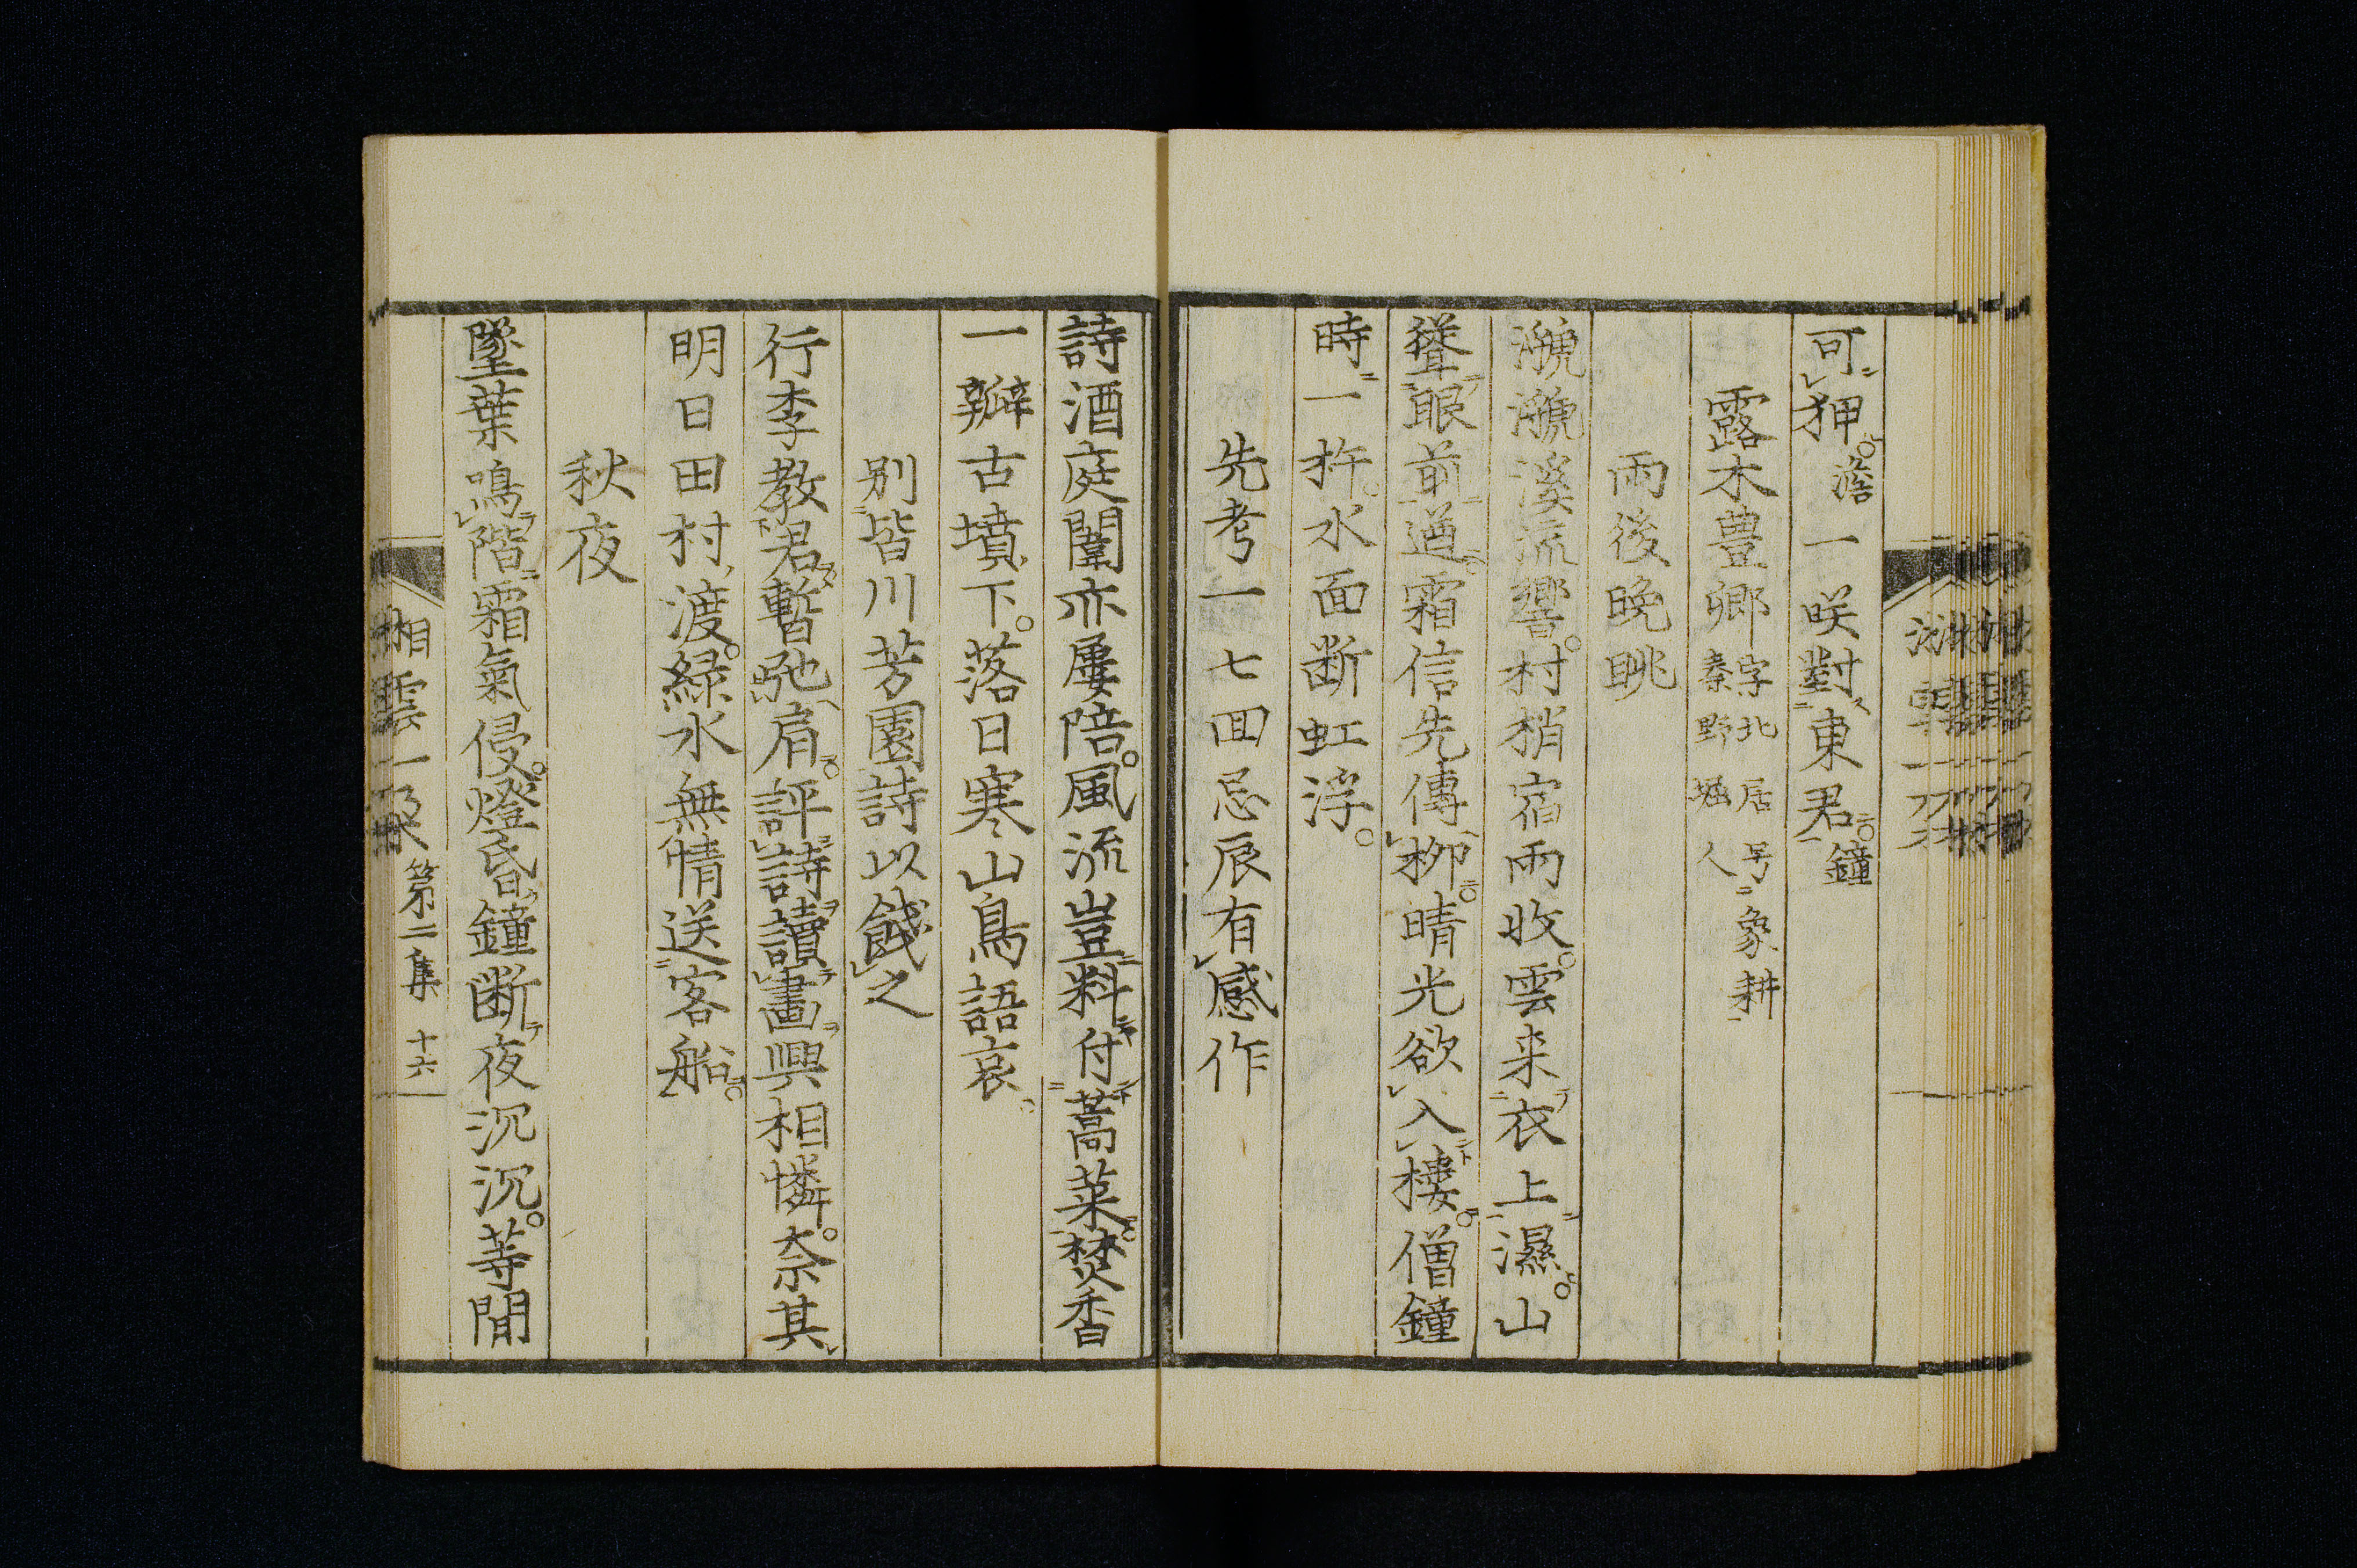 可狎。澹一咲對東君。鐘
露木豊卿字北居号象耕
秦野堀人
雨後晩眺
㶁㶁溪流響。村梢宿雨收。雲来衣上濕。山
聳眼前遒。霜信先傳柳。晴光欲入樓。僧鐘
時一杵。水面断虹浮。
先考一七回忌辰有感作
詩酒庭闈亦屢陪。風流豈料付蒿菜。焚香
一瓣古墳下。落日寒山鳥語哀。
別皆川芳園詩以餞之
行李教君暫弛肩。評詩讀畫興相憐。奈其
明日田村渡。緑水無情送客船。
秋夜
墜葉鳴階霜氣侵。燈昏鐘断夜沉沉。等閒
湘雲一朶 第二集 十六